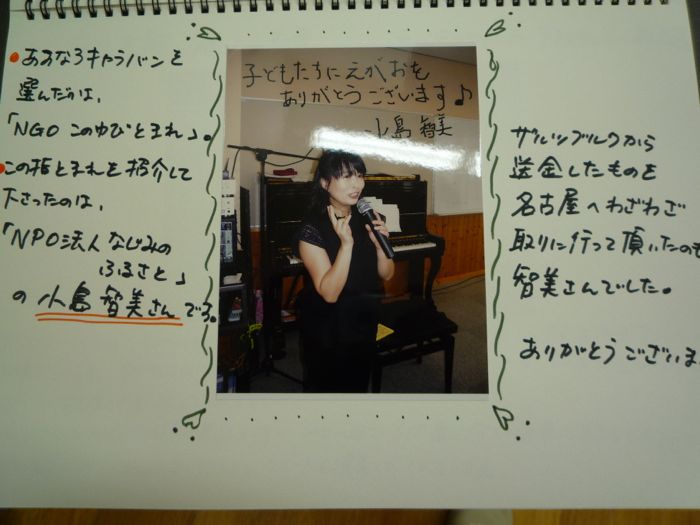 • あおなろキャラバンを
選んだのは、
「NGO このゆびとまれ」。
• この指とまれを紹介して
下さったのは、
「NPO法人 なじみの
ふるさと」
の 小島 智美さん です。
子どもたちに えがおを
ありがとうございます♪
小島 智美
ザルツブルクから
送金したものを
名古屋へわざわざ
取りに行って頂いたのも
智美さんでした。
ありがとうございま